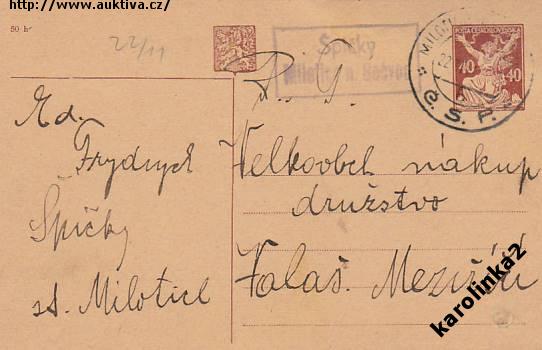 http://www.auktiva.cz/
50 h
22/11
Špičky
Milotice n. Bečvou
POŠTA ČESKOSLOVENSKÁ
40 40
Č. S. P.
Ed.
Frydrych
Špičky
st. Milotice
P. T.
Velkoobch nákup
družstvo
Valaš. Meziříčí
karolinka2